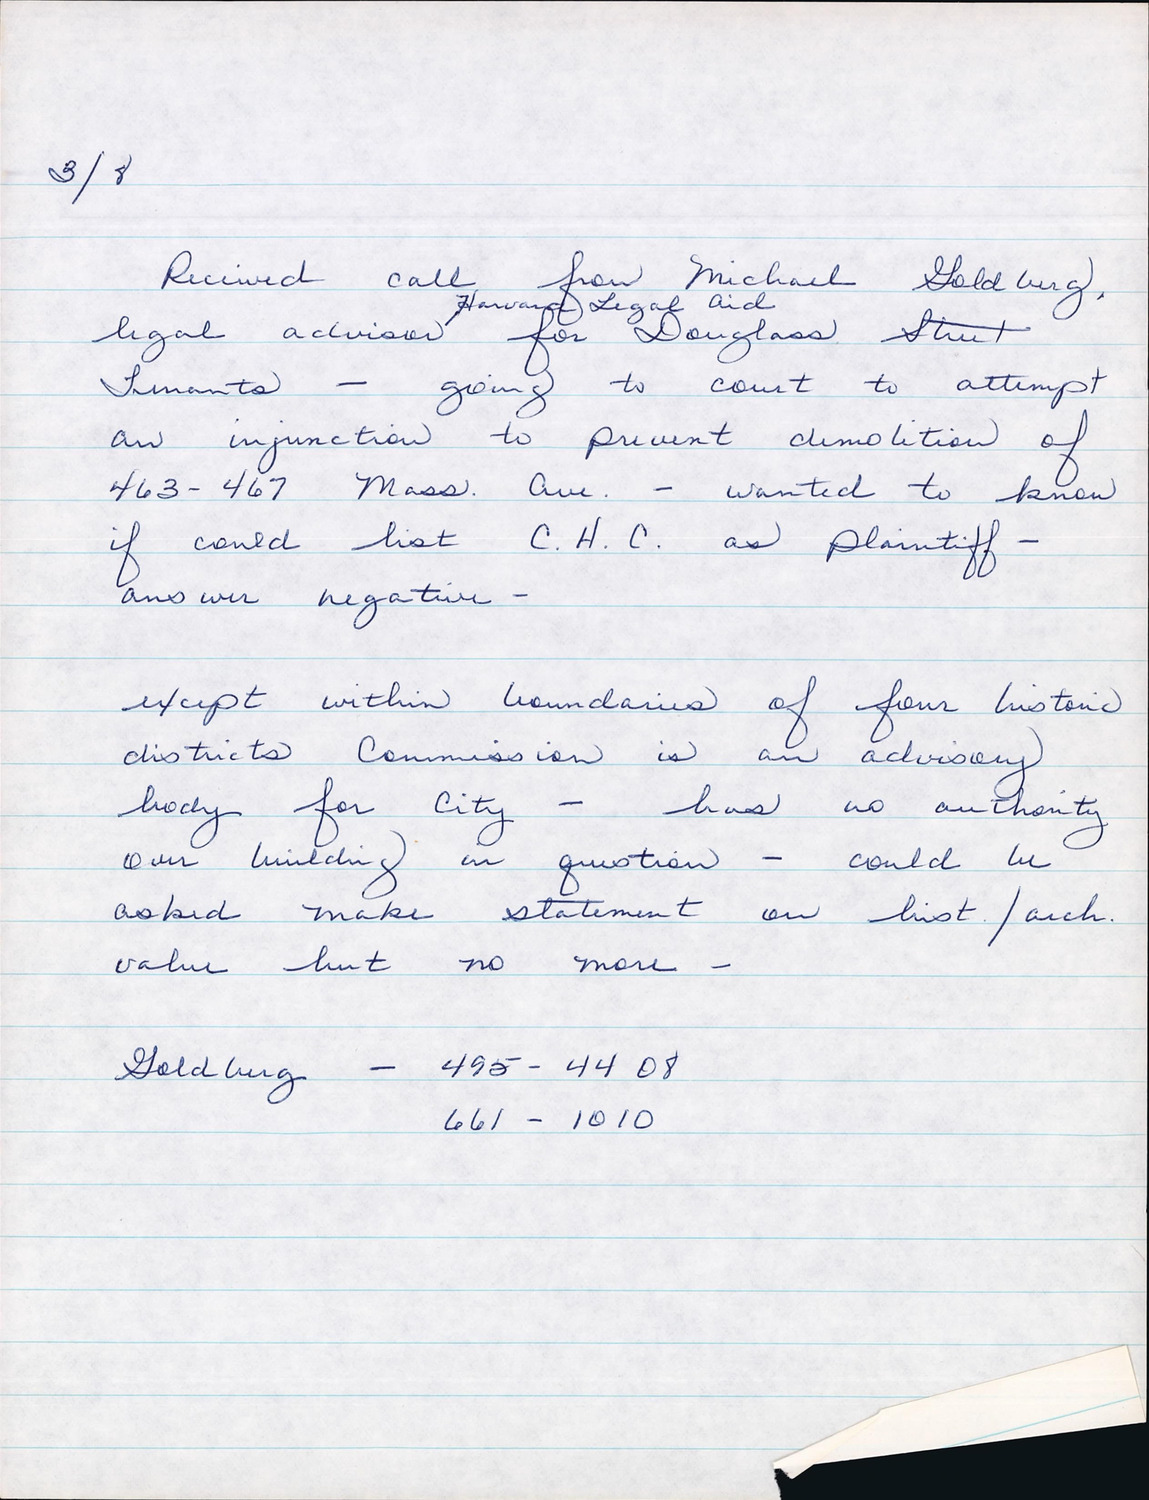 3/8
Received call from Michael Goldberg,
Harvard Legal Aid
legal advisor for Douglass Street
Tenants — going to court to attempt
an injunction to prevent demolition of
463-467 Mass. Ave. - wanted to know
if could list C.H.C. as plaintiff -
answer negative -
except within boundaries of four historic
districts Commission is an advisory
body for City - has no authority
over building in question - could be
asked make statement on hist./arch.
value but no more -
Goldberg - 495-4408
661-1010